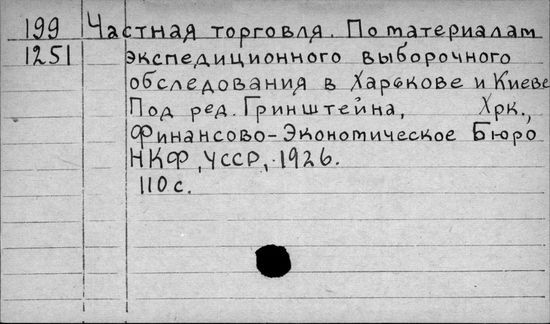 199 Частная торговля. По материалам
1251 экспедиционного выборочного
обследования в Харькове и Киеве
Под ред. Гринштейна, Хрк.,
Финансово-Экономическое Бюро
НКФ, УССР, 1926.
110 с.